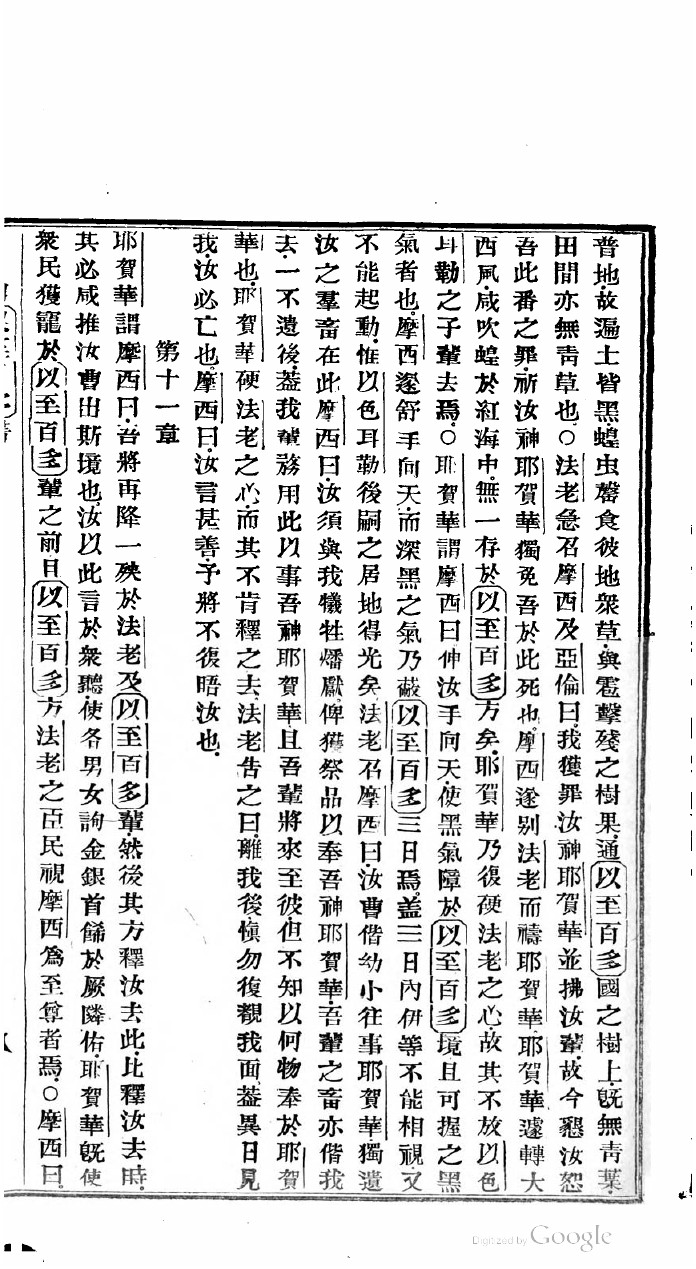 普地．故遍土皆黑．蝗虫罄食彼地衆草．與雹擊殘之樹果．通以至百多國之樹上．旣無靑葉．
田間亦無靑草也．○法老急召摩西及亞倫曰．我獲罪汝神耶賀華並拂汝輩．故今懇汝恕
吾此番之罪．祈汝神耶賀華獨免吾於此死也．摩西遂別法老而禱耶賀華．耶賀華遽轉大
西風．咸吹蝗於紅海中．無一存於以至百多方矣．耶賀華乃復硬法老之心．故其不放以色
耳勒之子輩去焉．○耶賀華謂摩西曰伸汝手向天．使黑氣障於以至百多境且可握之黑
氣者也．摩西遂舒手向天．而深黑之氣乃蔽以至百多三日焉．蓋三日內伊等不能相視．又
不能起動．惟以色耳勒後嗣之居地得光矣．法老召摩西曰．汝曹偕幼小往事耶賀華．獨遺
汝之羣畜在此．摩西曰．汝須與我犧牲燔獻．俾獲祭品以奉吾神耶賀華．吾輩之畜亦偕我
去．一不遺後．蓋我輩務用此以事吾神耶賀華．且吾輩將來至彼．但不知以何物奉於耶賀
華也．耶賀華硬法老之心．而其不肯釋之去．法老告之曰．離我後愼勿復觀我面．蓋異日見
我．汝必亡也．摩西曰．汝言甚善．予將不復晤汝也．
第十一章
耶賀華謂摩西曰．吾將再降一殃於法老及以至百多輩．然後其方釋汝去此．比釋汝去時．
其必咸推汝曹出斯境也．汝以此言於衆聽．使各男女詢金銀首餙於厥隣佑．耶賀華旣使
衆民獲寵於以至百多輩之前．且以至百多方法老之臣民視摩西爲至尊者焉．○摩西曰．
Digitized by Google